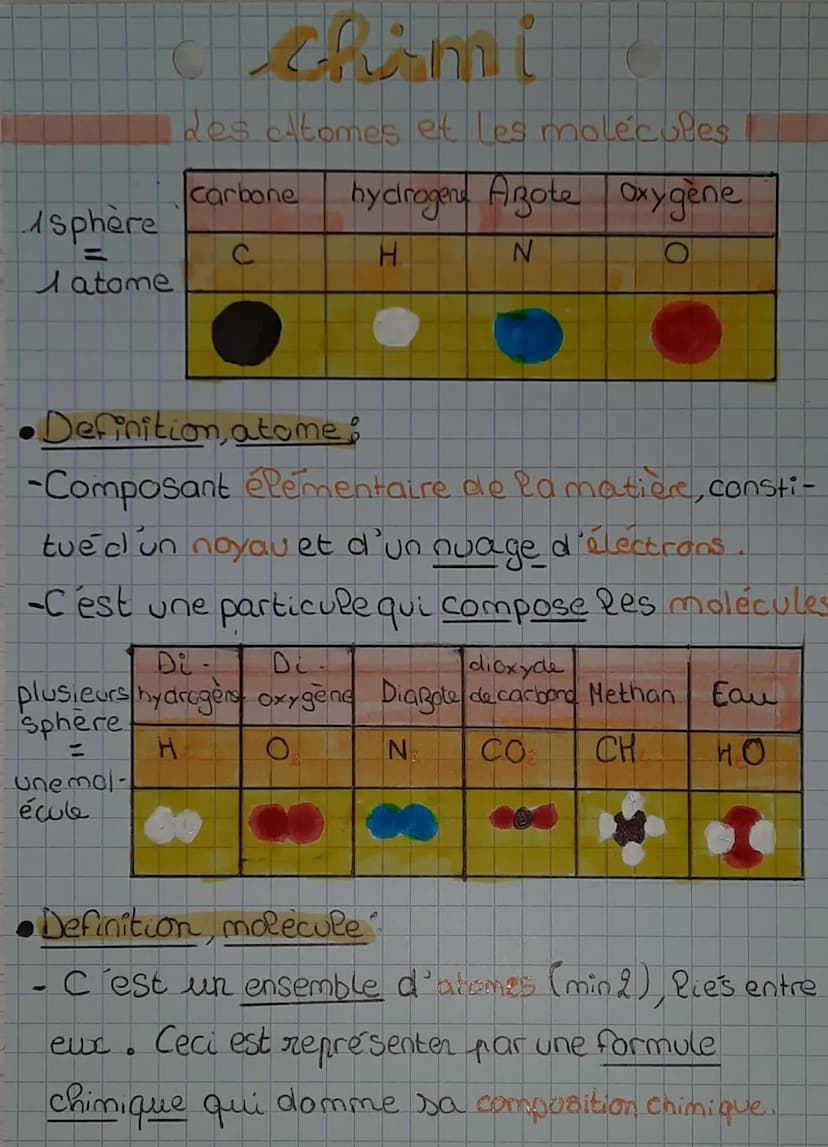 chimi
Les Atomes et les molécules
1 sphère
=
1 atome
carbone hydrogene Azote oxygène
C H N O
• Definition, atome :
- Composant élémentaire de la matière, consti-
tué d'un noyau et d'un nuage d'électrons.
- C'est une particule qui compose les molécules
plusieurs
sphère
=
une mol-
écule
Di-
hydrogène
Di-
oxygène
Diazote
dioxyde
de carbone
Methan
Eau
H₂ O₂ N₂ CO₂ CH₄ H₂O
• Definition, molécule :
- C'est un ensemble d'atomes (min 2), liés entre
eux. Ceci est représenter par une formule
chimique qui domme sa composition chimique.